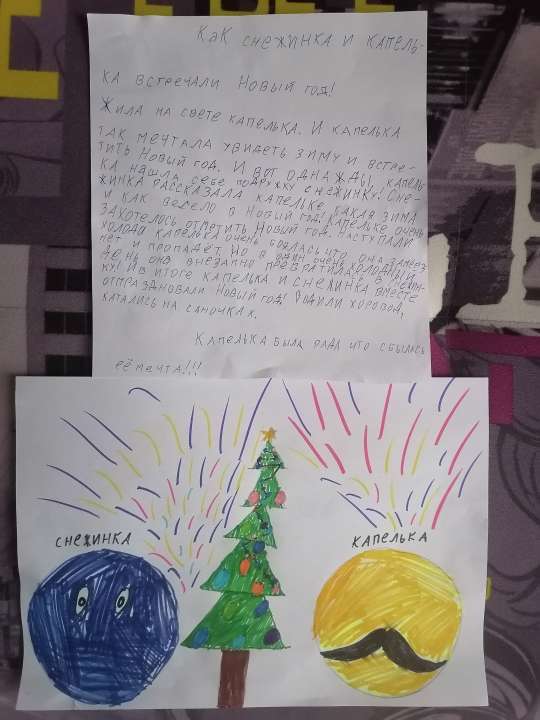 КаК снежинка и капель-
ка встречали Новый год!
Жила на свете капелька. И капелька
так мечтала увидеть зиму и встре-
тить Новый год. И вот однажды капель
ка нашла себе подружку снежинку! Сне-
жинка рассказала капельке какая зима
и как весело в Новый год! Капельке очень
захотелось отметить Новый год. Наступали
холода капелька очень боялась что она замерз
нет и пропадёт. Но в один очень холодный
день она внезапно превратилась в
ку! И в итоге капелька и снежинка вместе
отпраздновали Новый год! Водили хоровод,
катались на саночках.
Капелька была рада что сбылась
её мечта!!!
снежинка
капелька